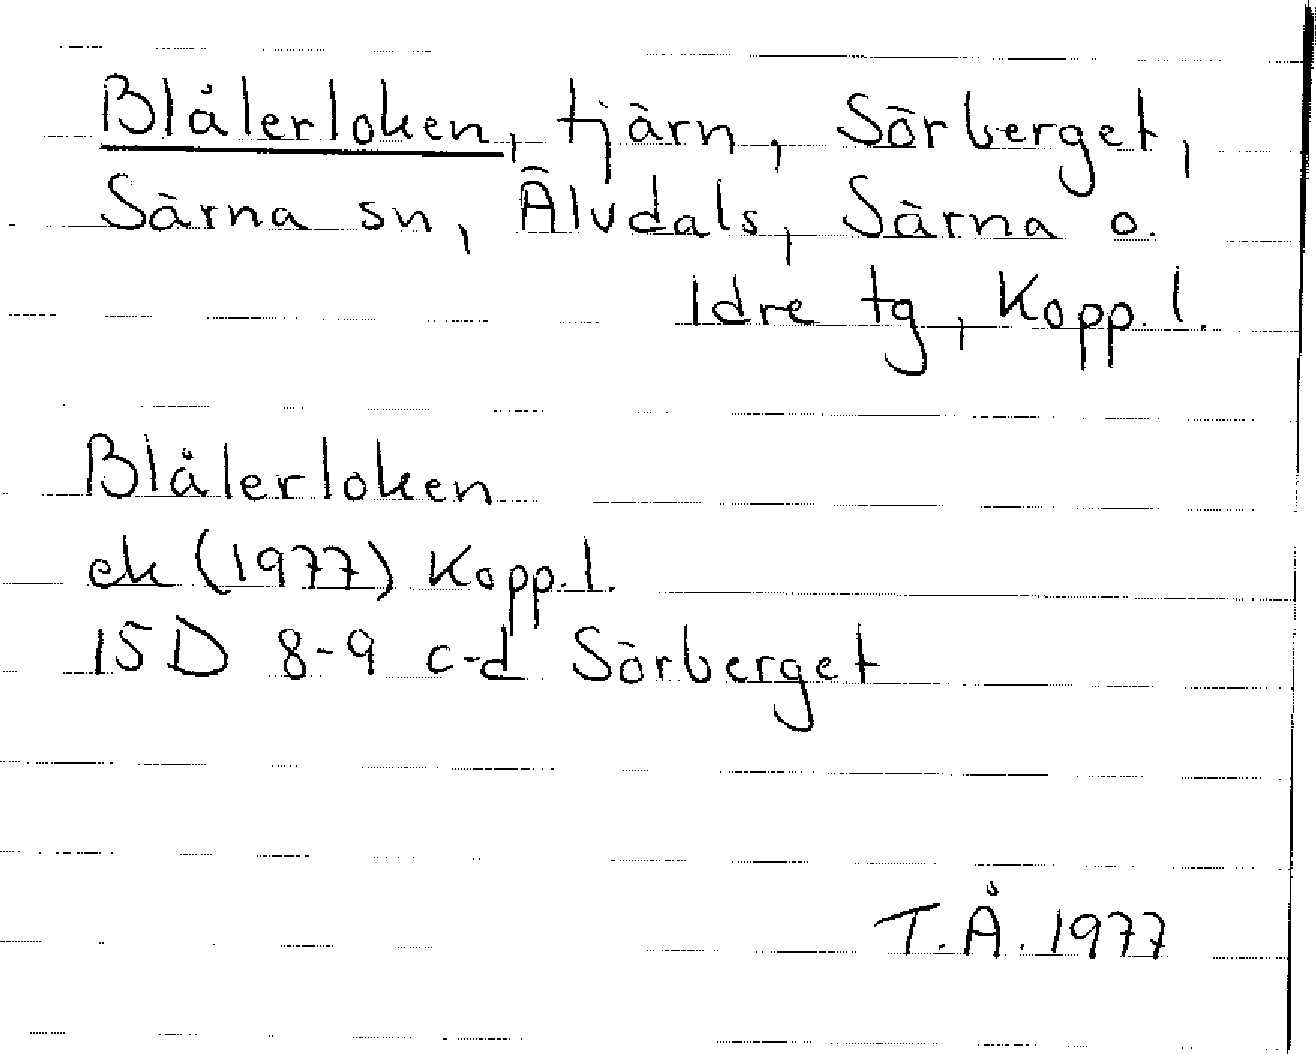 Blålerloken, tjärn, Sörberget,
Särna sn, Älvdals, Särna o.
Idre tg, Kopp. l.
Blålerloken
ek (1977) Kopp. l.
15D 8-9 c-d Sörberget
T.Å. 1977